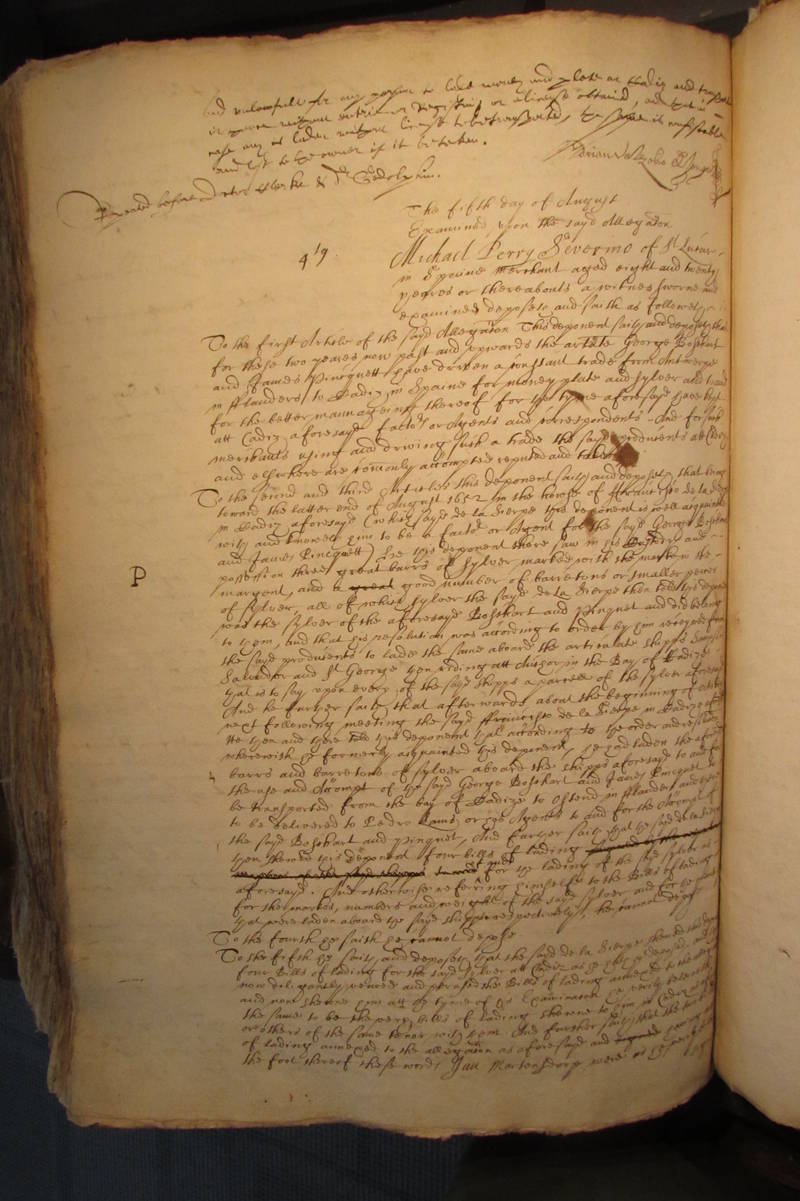 and unlawfull for any person to lade money and plate at Cadiz and transport
it thence without entries or Registring or a license obtained, and that in
case any is laden without license to be transported, the same is confiscable
and lost to the owner if it be taken.
Repeated before doctor Clerke & dr Godolphin.
The fifth day of August
Examined upon the sayd Allegation
4tg
Michael Perry Severino of St Lucar
in Spaine Merchant aged eight and twenty
yeares or thereabouts a witnes sworne and
examined deposeth and saith as followeth
To the first Article of the sayd Allegation This deponent saith and deposeth that
for these two yeares now past and upwards the articulate George Boschart
and James Pincquett have driven a constant trade from Antwerpe
in Flanders to Cadiz in Spaine for money plate and sylver and
for the better mannageing thereof for the tyme aforesayd have kept
att Cadiz aforesayd factors or Agents and correspondents And for such
merchants using and driving such a trade the sayd producents att Cadiz
and elsewhere are comonly accompted reputed and taken
To the second and third Articles this deponent saith and deposeth that
toward the latter end of August 1652 in the house of Francisco de la Sierpe
in Cadiz aforesayd (which sayd de la Sierpe this deponent is well acquainted
with and knoweth him to be a factor or Agent for the sayd George Boschart
and James Pincquett) hee this deponent there saw in his Custody and
possession three great barrs of sylver marked with the marke in the
margent, and a great good number of barretons or smaller peeces
P
of sylver, all of which sylver the sayd de La Sierpe then told this deponent
was the sylver of the aforesayd Boschart and Pinquet and did belong
to them, and that his resolution was according to order by him received from
the sayd producents to lade the same aboard the articulate shipps Sampson
Salvador and St George then riding att Anchor in the Bay of Cadiz
that is to say upon every of the sayd shipps a parcell of the sylver aforesayd
And he further saith that afterwards about the beginning of
next following meeting the sayd Francisco de la Sierpe in Cadiz
He then and there told this deponent that according to the order aforesayd
wherewith he formerly acquainted this deponent, he had laden the aforesayd
barrs and barretons of sylver aboard the shipps aforesayd to and for
the use and Accompt of the sayd George Boschart and James Pincquet to
be transported from the bay of Cadize to Ostend in Flanders and
to be delivered to Pedro or his Agents to and for the Accompt of
the sayd Boschart and Pinquet, And further saith that the sayd de la Sierpe
then shewed this deponent four bills of lading
for the lading of the sayd sylver as
aforesayd. And otherwise referring himselfe to the Bills of lading
for the markes, numbers and weight of the sayd sylver and for the
that were laden aboard the sayd shipps respectively, he cannot depose
To the fourth he saith he cannot depose
To the fifth he saith and deposeth that the sayd de la Sierpe shewed this deponent
four Bills of lading for the sayd sylver att Cadiz as he hath deposed, and
now diligently viewed and perused the Bills of lading annexed to the
and now shewne him att the tyme of his Examination he verily beleeveth
the same to be the very bills of lading shewne to him in Cadiz
or others of the same tenor with them And further saith that the
of lading annexed to the allegation as aforesayd and
the foot thereof these words Jan Martensdorp, were